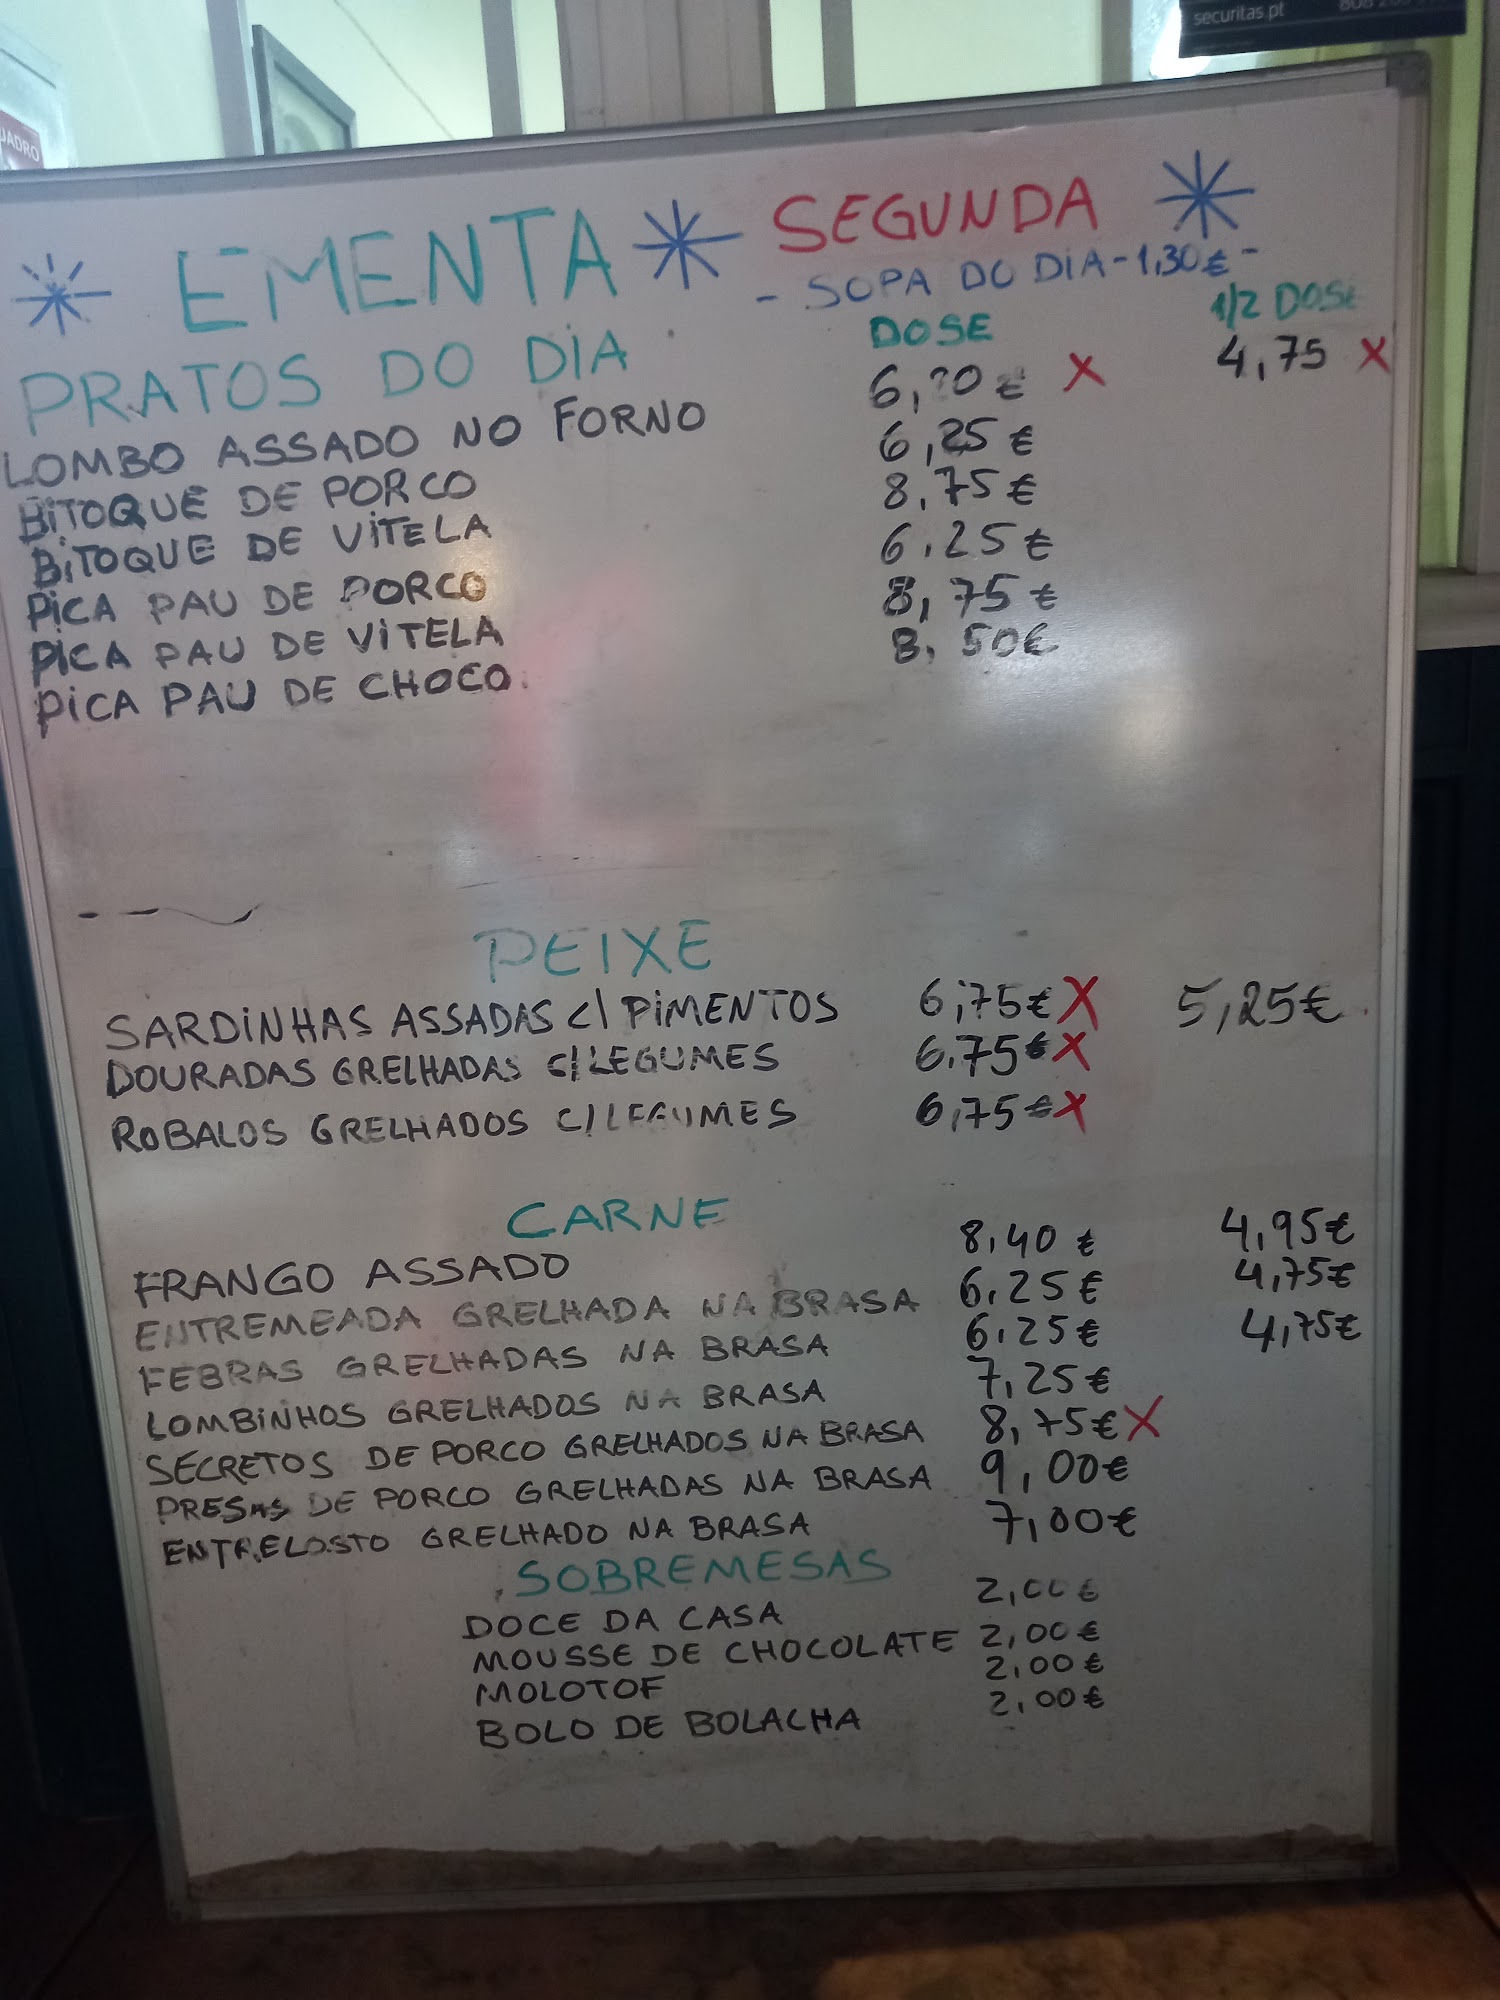 securitas.pt
* EMENTA * SEGUNDA *
- SOPA DO DIA - 1,30€ -
PRATOS DO DIA DOSE 1/2 DOSE
LOMBO ASSADO NO FORNO 6,20€ X 4,75 X
BITOQUE DE PORCO 6,25€
BITOQUE DE VITELA 8,75€
PICA PAU DE PORCO 6,25€
PICA PAU DE VITELA 8,75€
PICA PAU DE CHOCO 8,50€
PEIXE
SARDINHAS ASSADAS C/ PIMENTOS 6,75€ X 5,25€
DOURADAS GRELHADAS C/ LEGUMES 6,75€ X
ROBALOS GRELHADOS C/ LEGUMES 6,75€ X
CARNE
FRANGO ASSADO 8,40€ 4,95€
ENTREMEADA GRELHADA NA BRASA 6,25€ 4,75€
FEBRAS GRELHADAS NA BRASA 6,25€ 4,75€
LOMBINHOS GRELHADOS NA BRASA 7,25€
SECRETOS DE PORCO GRELHADOS NA BRASA 8,75€ X
PRESAS DE PORCO GRELHADAS NA BRASA 9,00€
ENTRELOSTO GRELHADO NA BRASA 7,00€
SOBREMESAS
DOCE DA CASA 2,00€
MOUSSE DE CHOCOLATE 2,00€
MOLOTOF 2,00€
BOLO DE BOLACHA 2,00€